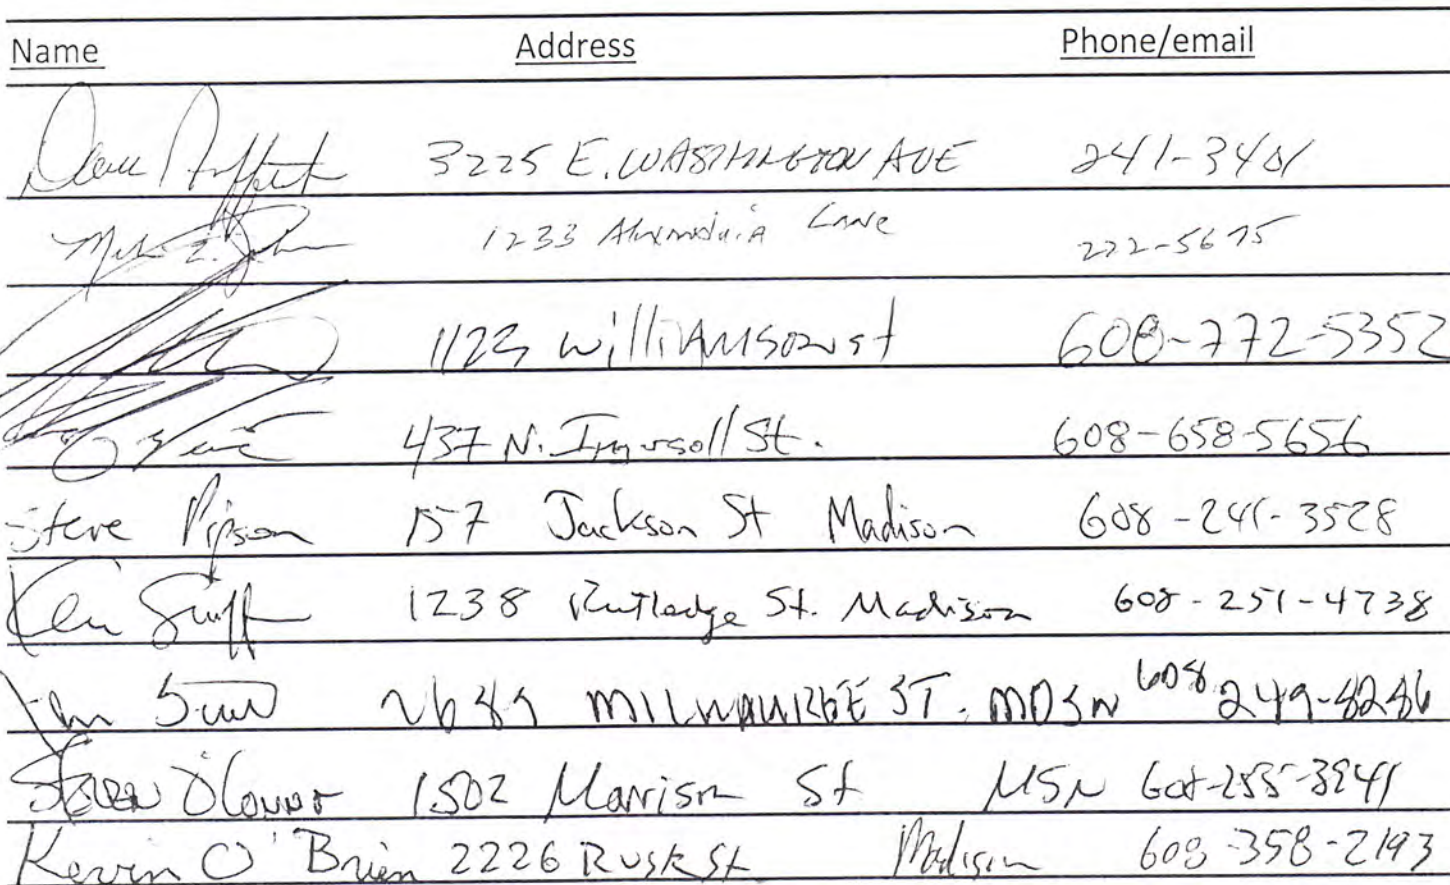 Name Address Phone/email
3225 E. WASHINGTON AVE 241-3401
1233 Lane 222-5675
1123 Williamson st 608-772-5352
437 N. Ingersoll St. 608-658-5656
Steve Pipson 157 Jackson St Madison 608-241-3528
Ken 1238 Rutledge St. Madison 608-251-4738
2689 MILWAUKEE ST. MDSN 608 249-8286
Steven O'Connor 1502 Morrison St MSN 608-255-3941
Kevin O'Brien 2226 Rusk St Madison 608-358-2193